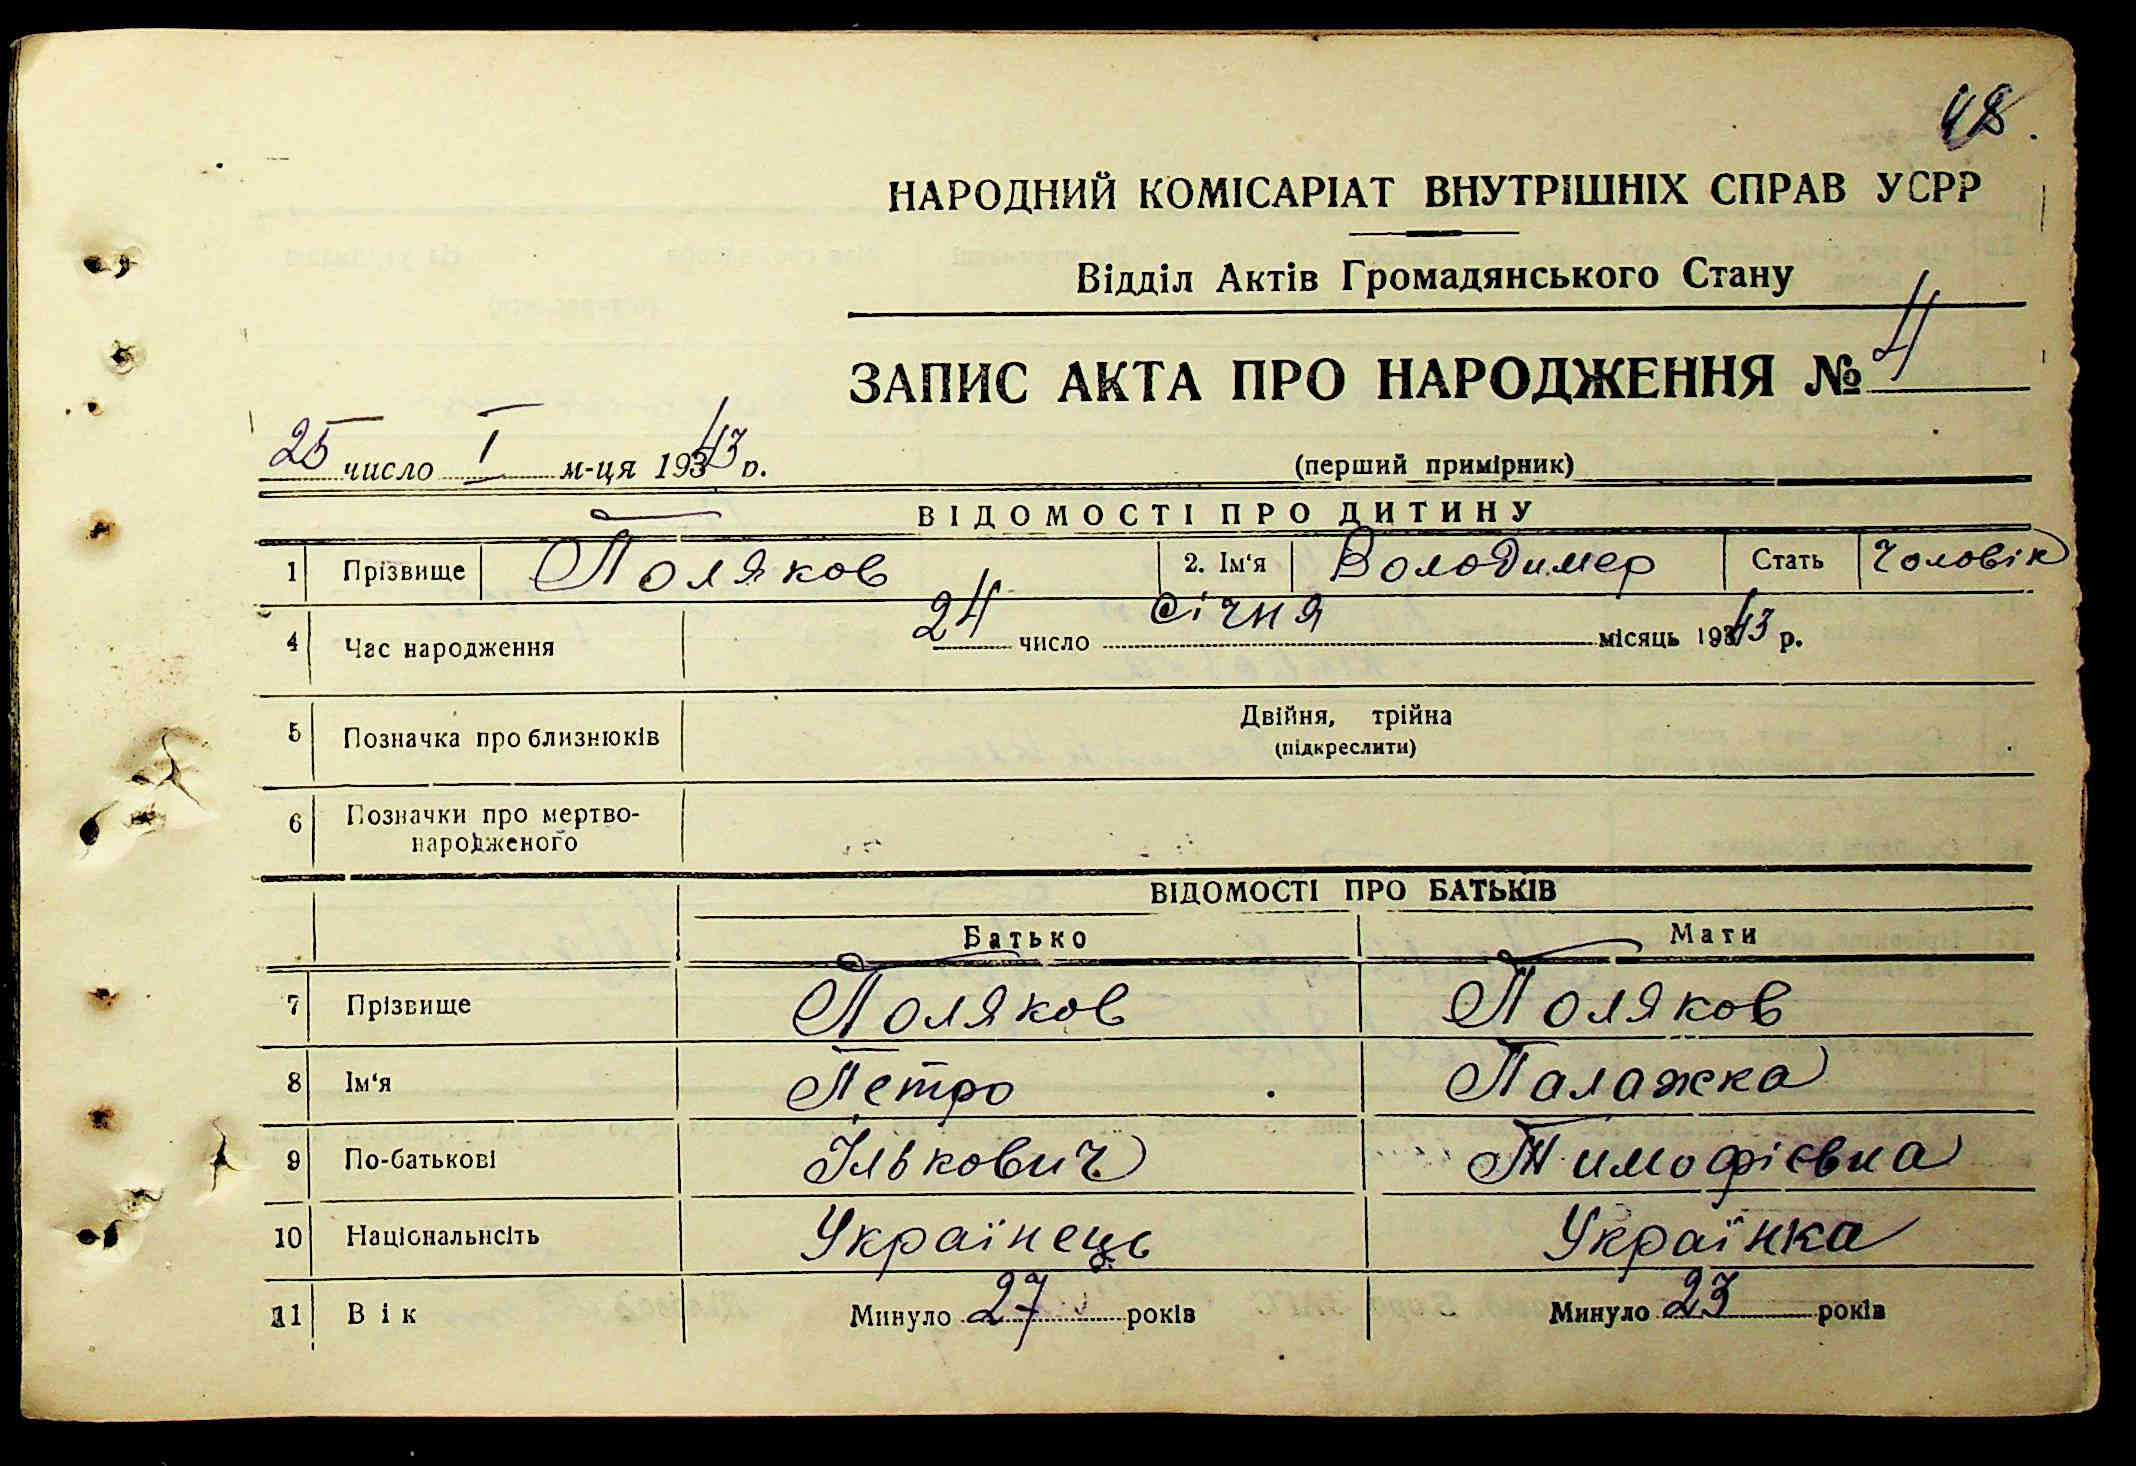 48.
НАРОДНИЙ КОМІСАРІАТ ВНУТРІШНІХ СПРАВ УСРР
Відділ Актів Громадянського Стану
ЗАПИС АКТА ПРО НАРОДЖЕННЯ № 4
25 число I м-ця 1943 р.
(перший примірник)
ВІДОМОСТІ ПРО ДИТИНУ
1 Прізвище Поляков 2. Ім‘я Володимер Стать Чоловік
4 Час народження 24 число Січня місяць 1943 р.
5 Позначка про близнюків Двійня, трійна
(підкреслити)
6 Позначки про мертво-
народженого
ВІДОМОСТІ ПРО БАТЬКІВ
Батько Мати
7 Прізвище Поляков Поляков
8 Ім‘я Петро Палажка
9 По-батькові Ількович Тимофієвна
10 Національнсіть Українець Українка
11 Вік Минуло 27 років Минуло 23 років